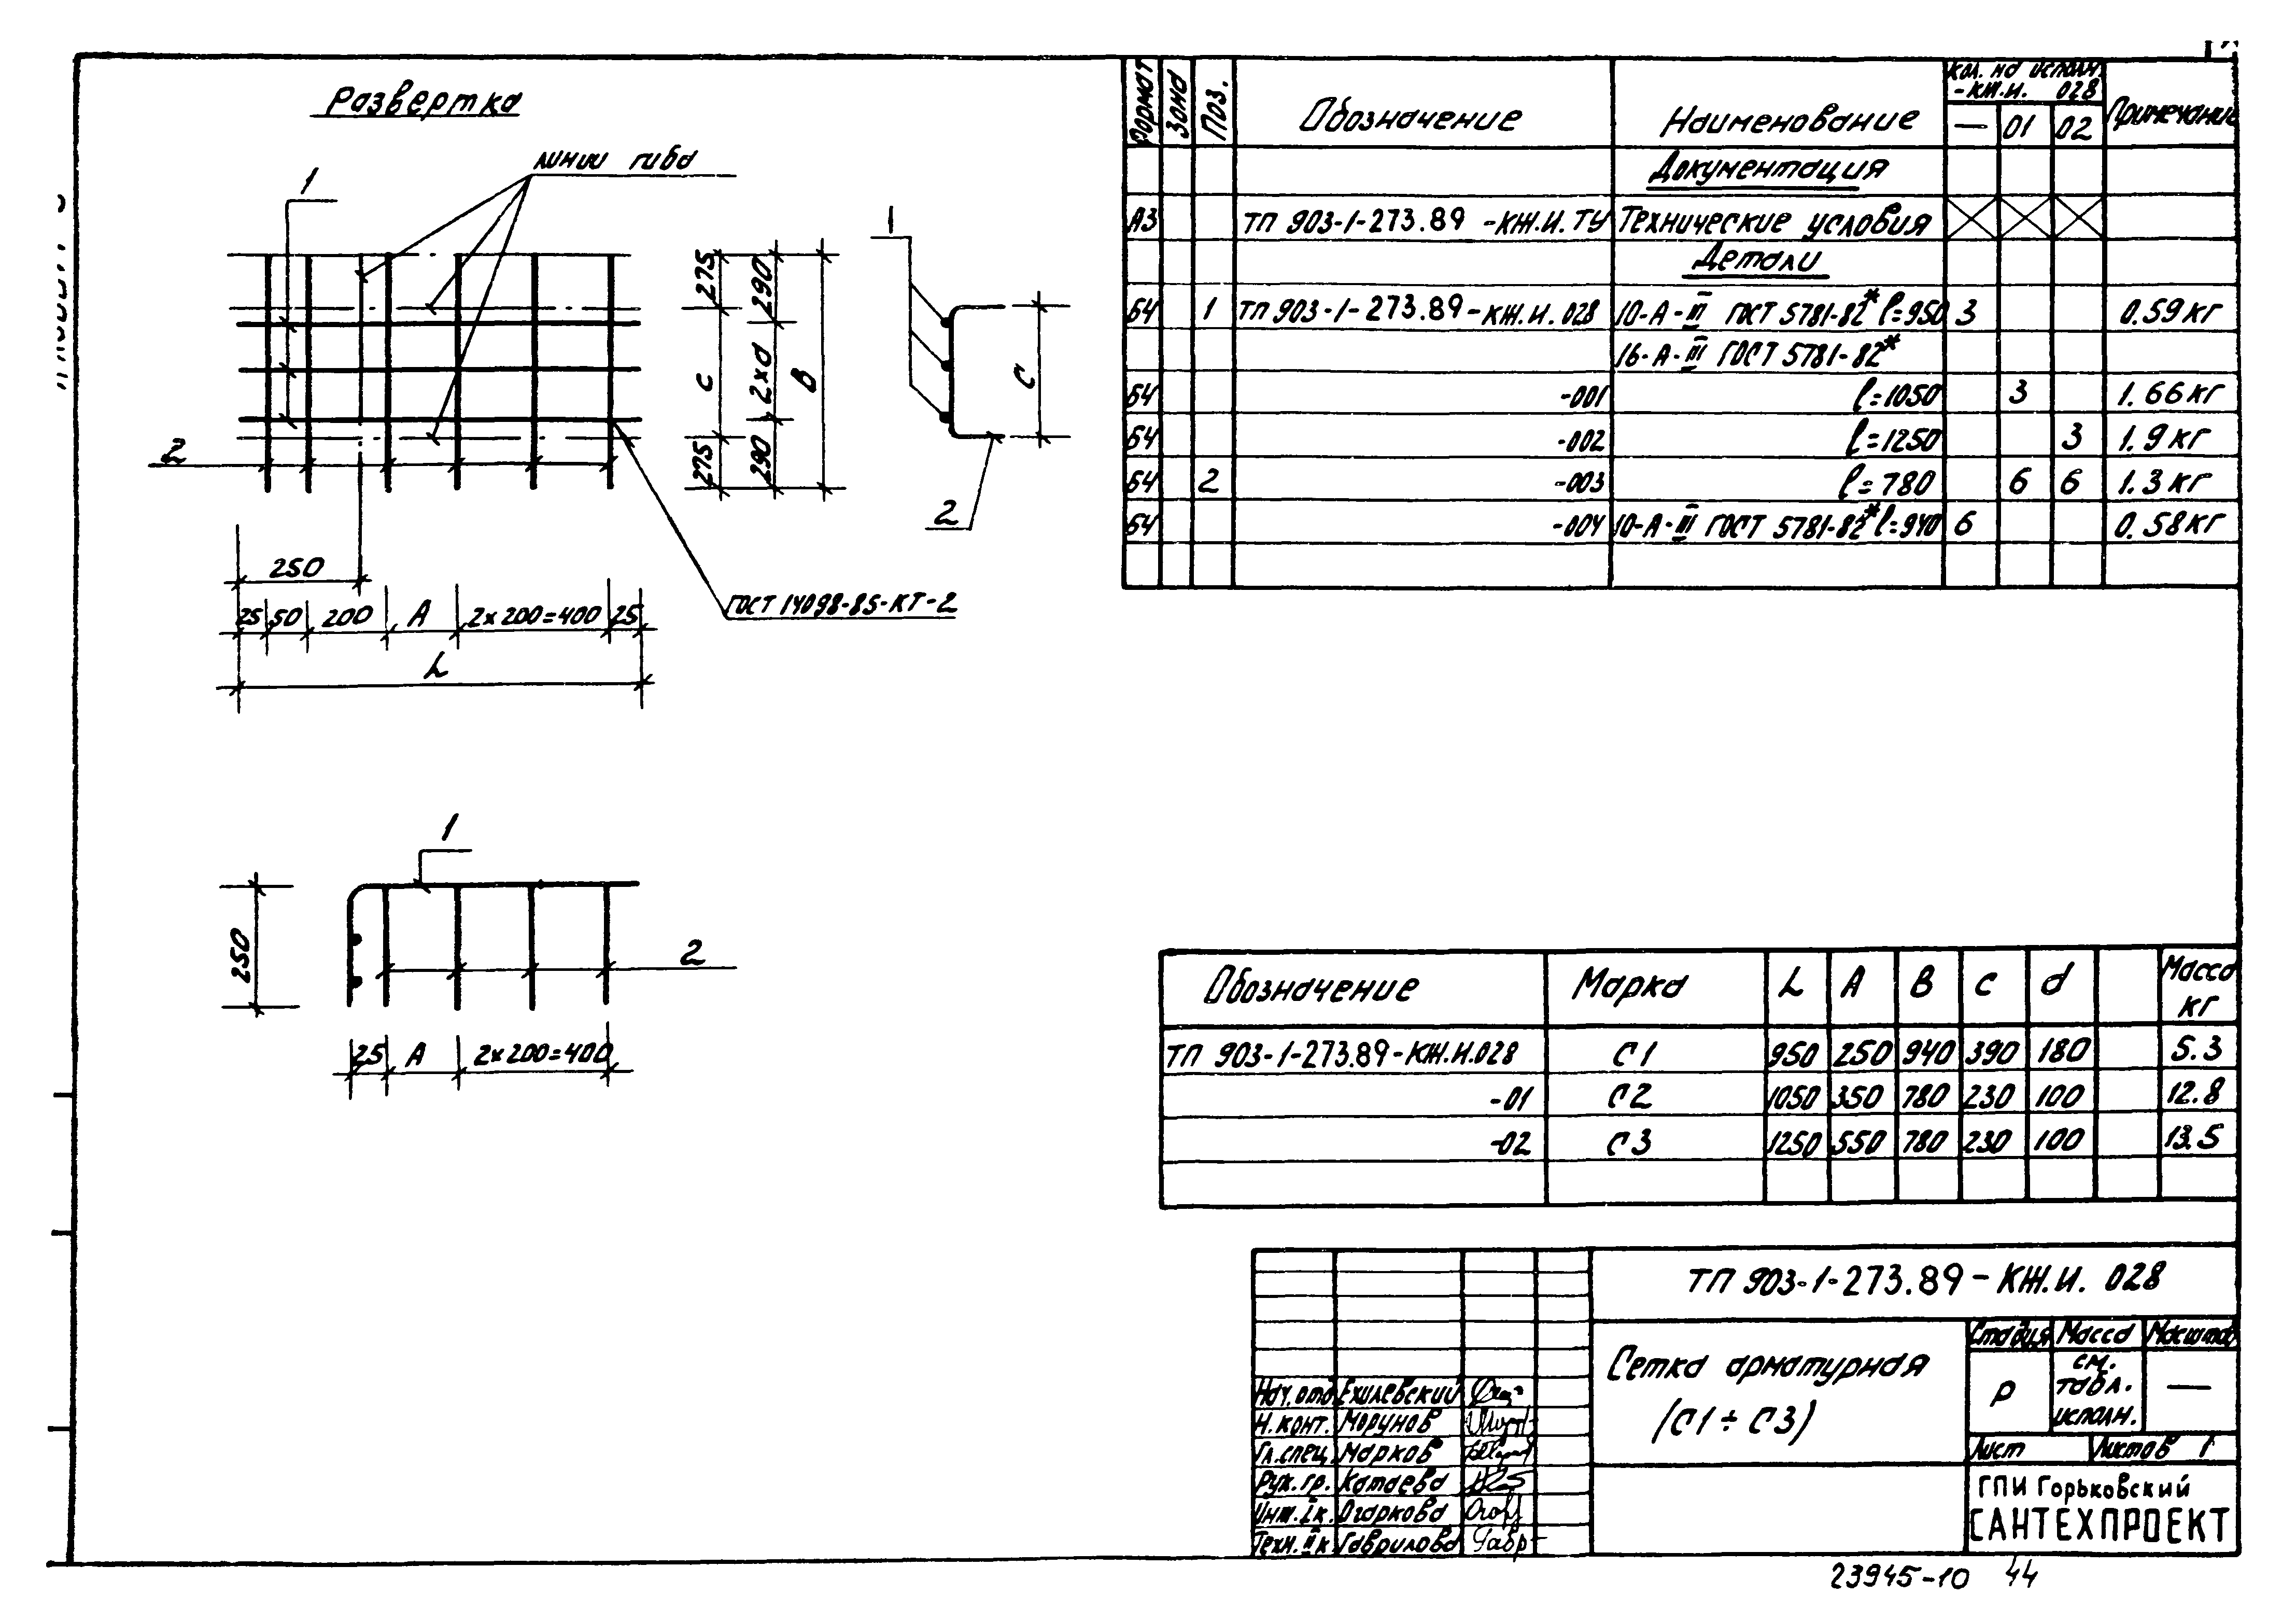 Развертка
линии гиба
1
2
275
С
275
290
2×d
290
В
250
25 50 200 А 2×200=400 25
L
ГОСТ 14098-85-КТ-2
1
С
2
1
250
2
25 А 2×200=400
Формат Зона Поз. Обозначение Наименование Кол. на исполн. -КЖ.И. 028 Примечание
— 01 02
Документация
А3 ТП 903-1-273.89 -КЖ.И.ТУ Технические условия
Детали
БЧ 1 ТП 903-1-273.89-КЖ.И.028 10-А-III ГОСТ 5781-82* ℓ=950 3 0.59кг
16-А-III ГОСТ 5781-82*
БЧ -001 ℓ=1050 3 1.66кг
БЧ -002 ℓ=1250 3 1.9кг
БЧ 2 -003 ℓ=780 6 6 1.3кг
БЧ -004 10-А-III ГОСТ 5781-82* ℓ=940 6 0.58кг
Обозначение Марка L А В С d Масса кг
ТП 903-1-273.89-КЖ.И.028 С1 950 250 940 390 180 5.3
-01 С2 1050 350 780 230 100 12.8
-02 С3 1250 550 780 230 100 13.5
ТП 903-1-273.89-КЖ.И. 028
Сетка арматурная
(С1÷С3)
Стадия Масса Масштаб
Р см. табл. исполн. —
Лист Листов 1
ГПИ Горьковский
САНТЕХПРОЕКТ
Нач.отд. Ехилевский
Н.конт. Морунов
Гл.спец. Марков
Рук.гр. Катаева
Инж.Iк. Огаркова
Техн.IIк. Гаврилова
23945-10 44